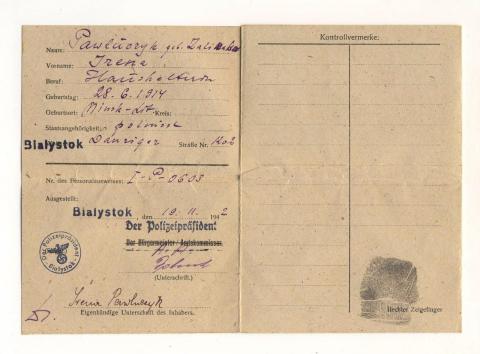 Name: Pawluczyk geb.
Vorname: Irena
Beruf:
Geburtstag: 28. 6. 1914
Geburtsort: Minsk-Lit. Kreis:
Staatsangehörigkeit: polnisch
Bialystok Danziger Straße Nr.
Nr. des Personalausweises: I-P-0603
Ausgestellt:
Bialystok, den 19. 11. 1942
Der Polizeipräsident
Der Bürgermeister / Amtskommissar
(Unterschrift.)
Der Polizeipräsident
Bialystok
Irena Pawluczyk
Eigenhändige Unterschrift des Inhabers.
Kontrollvermerke:
Rechter Zeigefinger